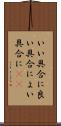 いい具合に良
い具合によい
具合に((